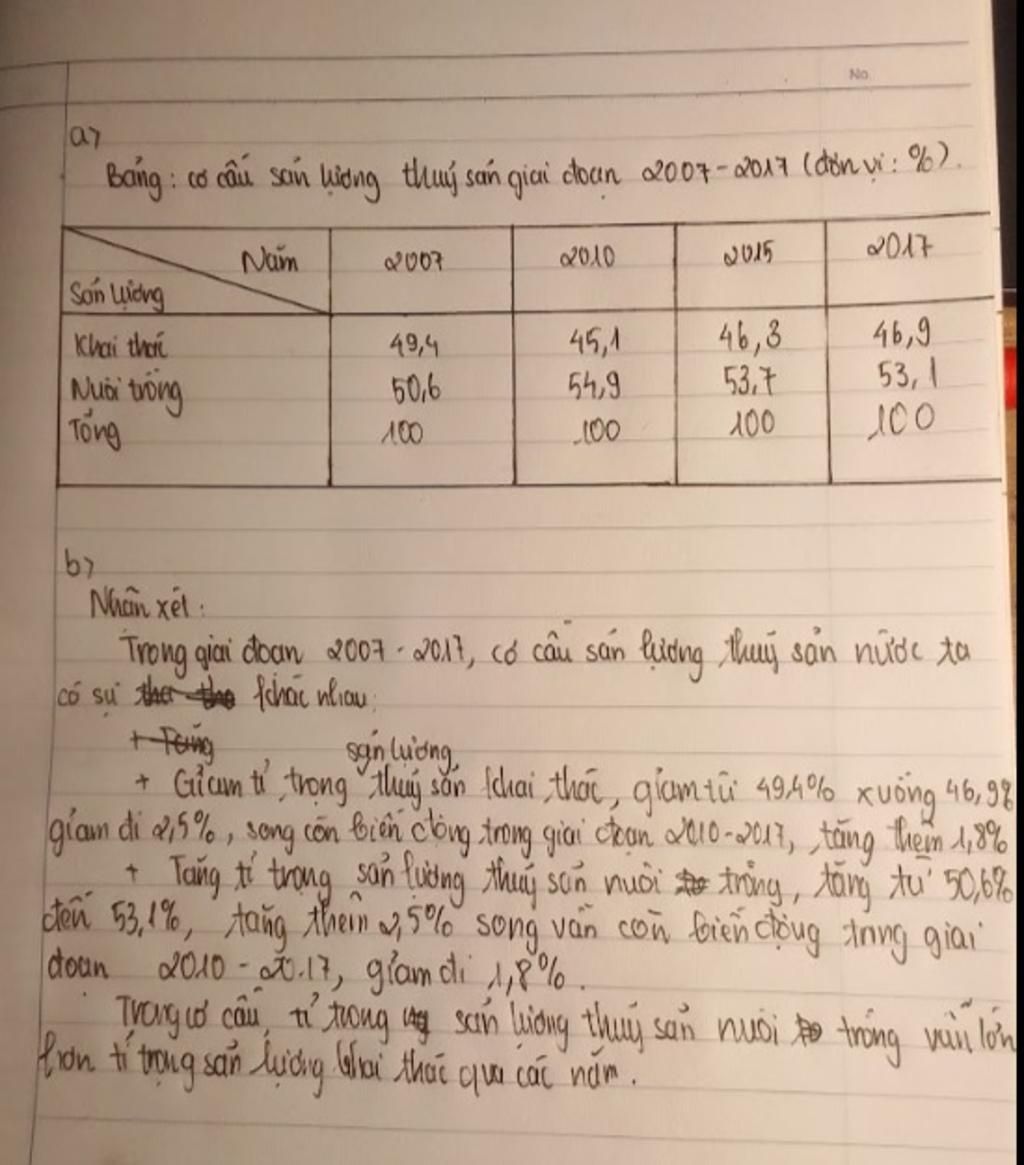 No.
a)
Bảng: cơ cấu sản lượng thuỷ sản giai đoạn 2007-2017 (đơn vị: %).
Năm 2007 2010 2015 2017
Sản lượng
Khai thác 49,4 45,1 46,3 46,9
Nuôi trồng 50,6 54,9 53,7 53,1
Tổng 100 100 100 100
b)
Nhận xét:
Trong giai đoạn 2007-2017, cơ cấu sản lượng thuỷ sản nước ta
có sự khác nhau:
+ Tăng sản lượng
+ Giảm tỉ trọng thuỷ sản khai thác, giảm từ 49,4% xuống 46,9%
giảm đi 2,5%, song còn biến động trong giai đoạn 2010-2017, tăng thêm 1,8%
+ Tăng tỉ trọng sản lượng thuỷ sản nuôi trồng, tăng từ 50,6%
đến 53,1%, tăng thêm 2,5% song vẫn còn biến động trong giai
đoạn 2010-2017, giảm đi 1,8%.
Trong cơ cấu, tỉ trọng sản lượng thuỷ sản nuôi trồng vẫn lớn
hơn tỉ trọng sản lượng khai thác qua các năm.